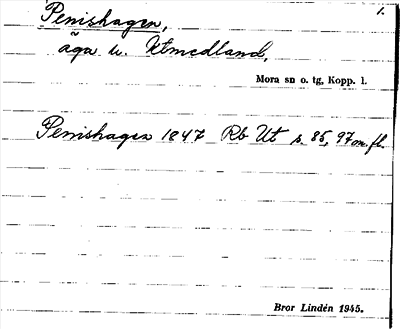 Penishagen, 1.
äga u. Utmedland,
Mora sn o. tg, Kopp. l.
Penishagen 1847 Rb Ut s. 85, 97 m. fl.
Bror Lindén 1945.